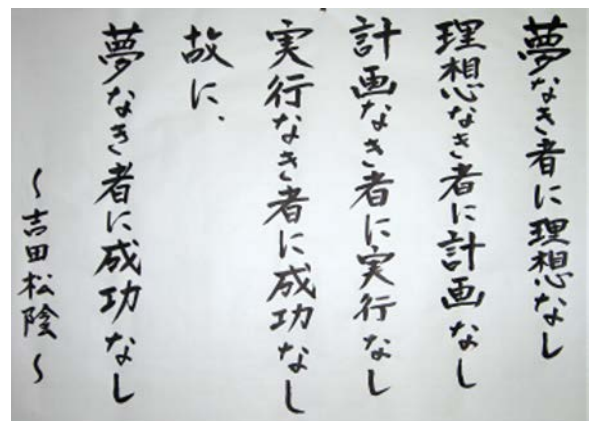 夢なき者に理想なし
理想なき者に計画なし
計画なき者に実行なし
実行なき者に成功なし
故に、
夢なき者に成功なし
〜吉田松陰〜